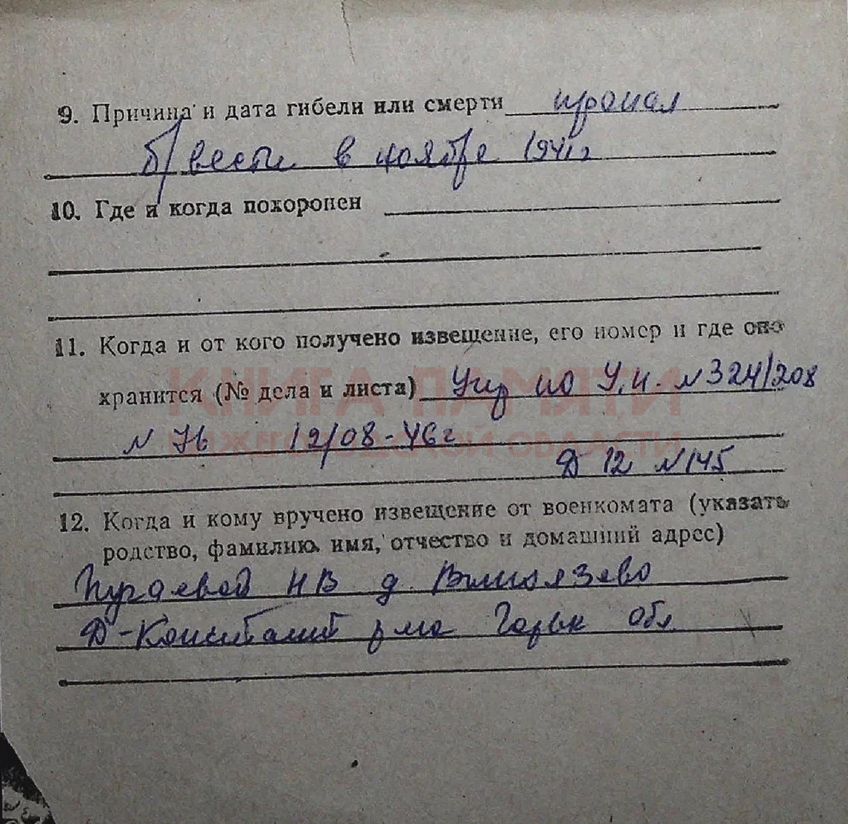 9. Причина и дата гибели или смерти пропал
б/вести в ноябре 1941 г
10. Где и когда похоронен
11. Когда и от кого получено извещение, его номер и где оно
хранится (№ дела и листа) Упр по У.И. № 324/208
КНИГА ПАМЯТИ
N 76 12/08-46 г
НИЖЕГОРОДСКОЙ ОБЛАСТИ
Д 12 N 145
12. Когда и кому вручено извещение от военкомата (указать
родство, фамилию, имя, отчество и домашний адрес)
Пугаевой НВ д.
Д-Константин р-на Горьк Обл